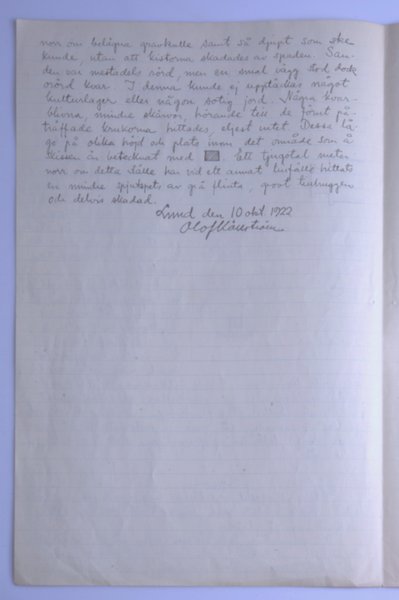 norr om belägna grankulle samt så djupt som ske
kunde, utan att kistorna skadades av spaden. San-
den var mestadels rörd, men en smal vägg stod dock
orörd kvar. I denna kunde ej upptäckas något
kulturlager eller någon sotig jord. Några kvar-
blivna, mindre skärvor, hörande till de förut på-
träffade krukorna hittades, eljest intet. Dessa lå-
ge på olika höjd och plats inom det område som å
skissen är betecknat med . Ett tjugotal meter
norr om detta ställe har vid ett annat tillfälle hittats
en mindre spjutspets av grå flinta, grovt tillhuggen
och delvis skadad.
Lund den 10 okt. 1922
Olof Källström